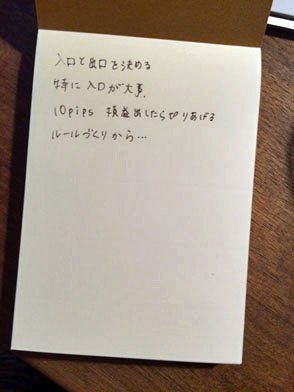 入口と出口を決める
特に入口が大事.
10pips 損益出したら切りあげる
ルールづくりから…